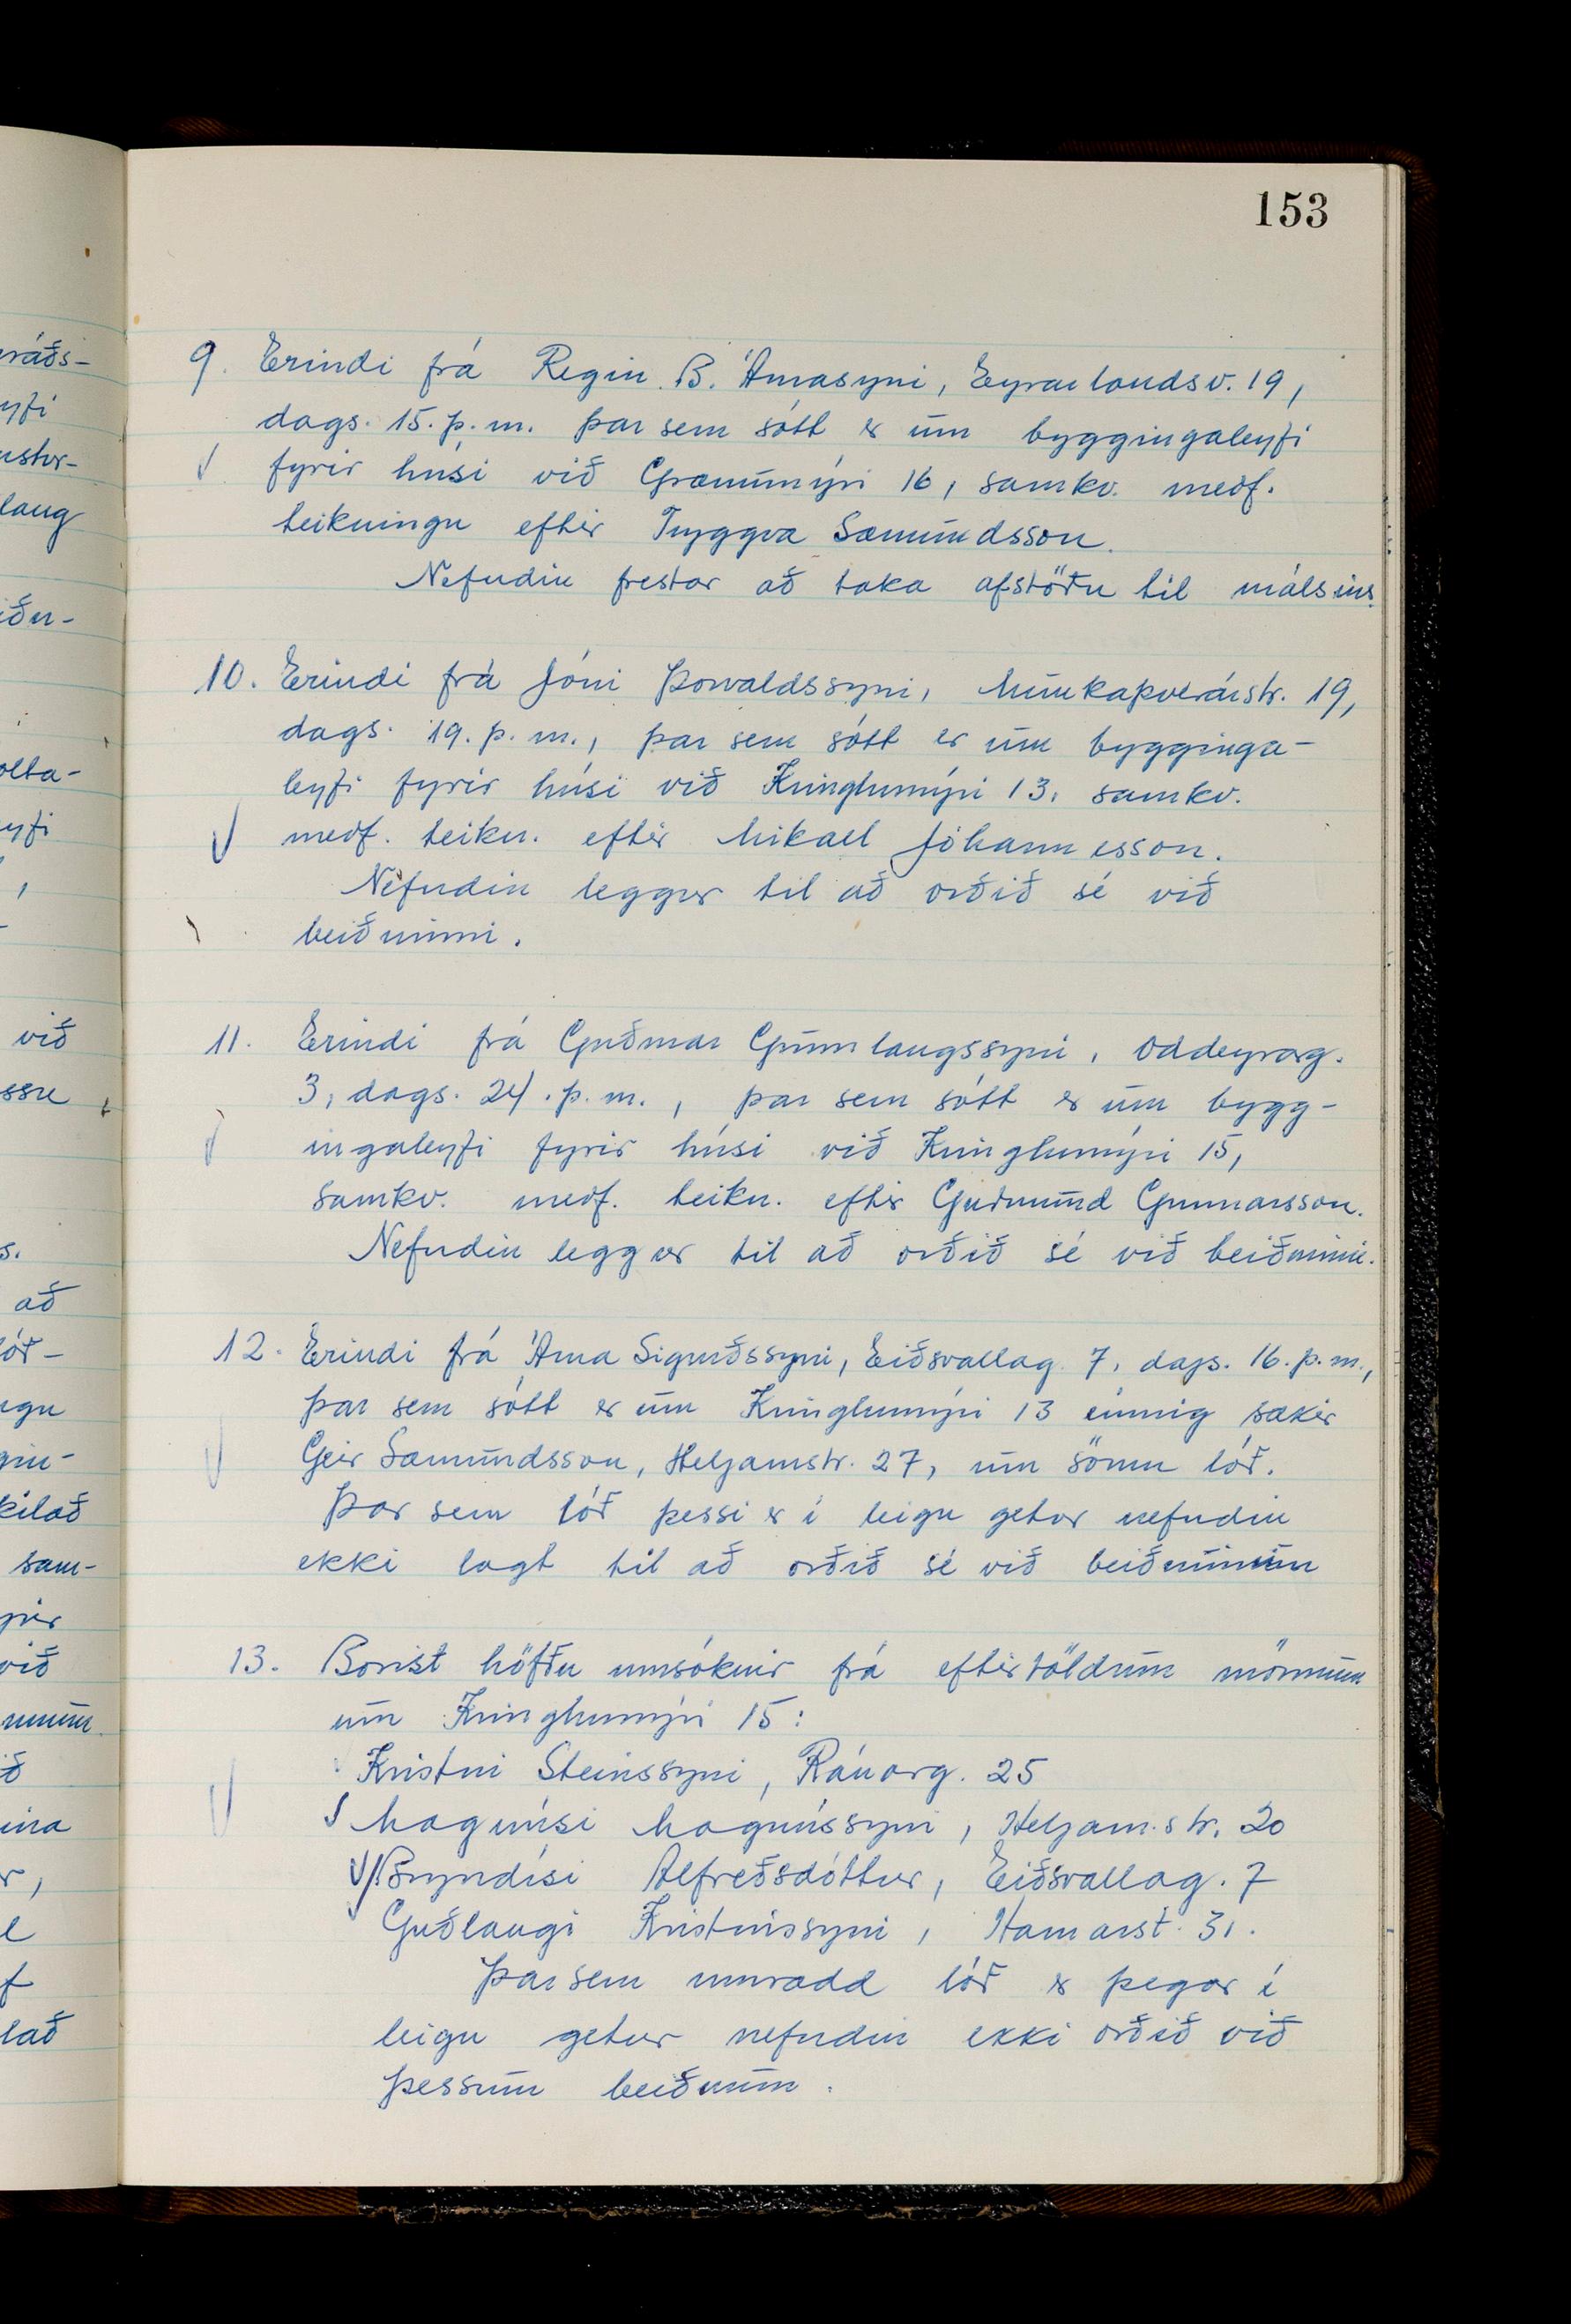 153
9. Erindi frá Regin B. Árnasyni, Eyrarlandsv. 19,
dags. 15. þ.m. þar sem sótt er um byggingaleyfi
fyrir húsi við Grænumýri 16, samkv. meðf.
teikningu eftir Tryggva Sæmundsson.
Nefndin frestar að taka afstöðu til málsins.
10. Erindi frá Jóni Þorvaldssyni, Munkaþverárstr. 19,
dags. 19. þ.m., þar sem sótt er um bygginga-
leyfi fyrir húsi við Kringlumýri 13, samkv.
meðf. teikn. eftir Mikael Jóhannesson.
Nefndin leggur til að orðið sé við
beiðninni.
11. Erindi frá Guðmar Gunnlaugssyni, Oddeyrarg.
3, dags. 24. þ.m., þar sem sótt er um bygg-
ingaleyfi fyrir húsi við Kringlumýri 15,
samkv. meðf. teikn. eftir Guðmund Gunnarsson.
Nefndin leggur til að orðið sé við beiðninni.
12. Erindi frá Árna Sigurðssyni, Eiðsvallag. 7, dags. 16. þ.m.,
þar sem sótt er um Kringlumýri 13 einnig sækir
Geir Sæmundsson, Helgamstr. 27, um sömu lóð.
Þar sem lóð þessi er í leigu getur nefndin
ekki lagt til að orðið sé við beiðninum
13. Borist höfðu umsóknir frá eftirtöldum mönnum
um Kringlumýri 15:
Kristni Steinssyni, Ránarg. 25
Magnúsi Magnússyni, Helgam.str. 20
Bryndísi Alfreðsdóttur, Eiðsvallag. 7
Guðlaugi Kristinssyni, Hamarst. 31.
Þar sem umrædd lóð er þegar í
leigu getur nefndin ekki orðið við
þessum beiðnum.